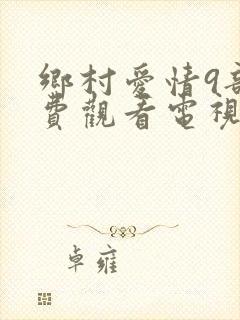 鄉村愛情9部
費觀看電視
卓雍